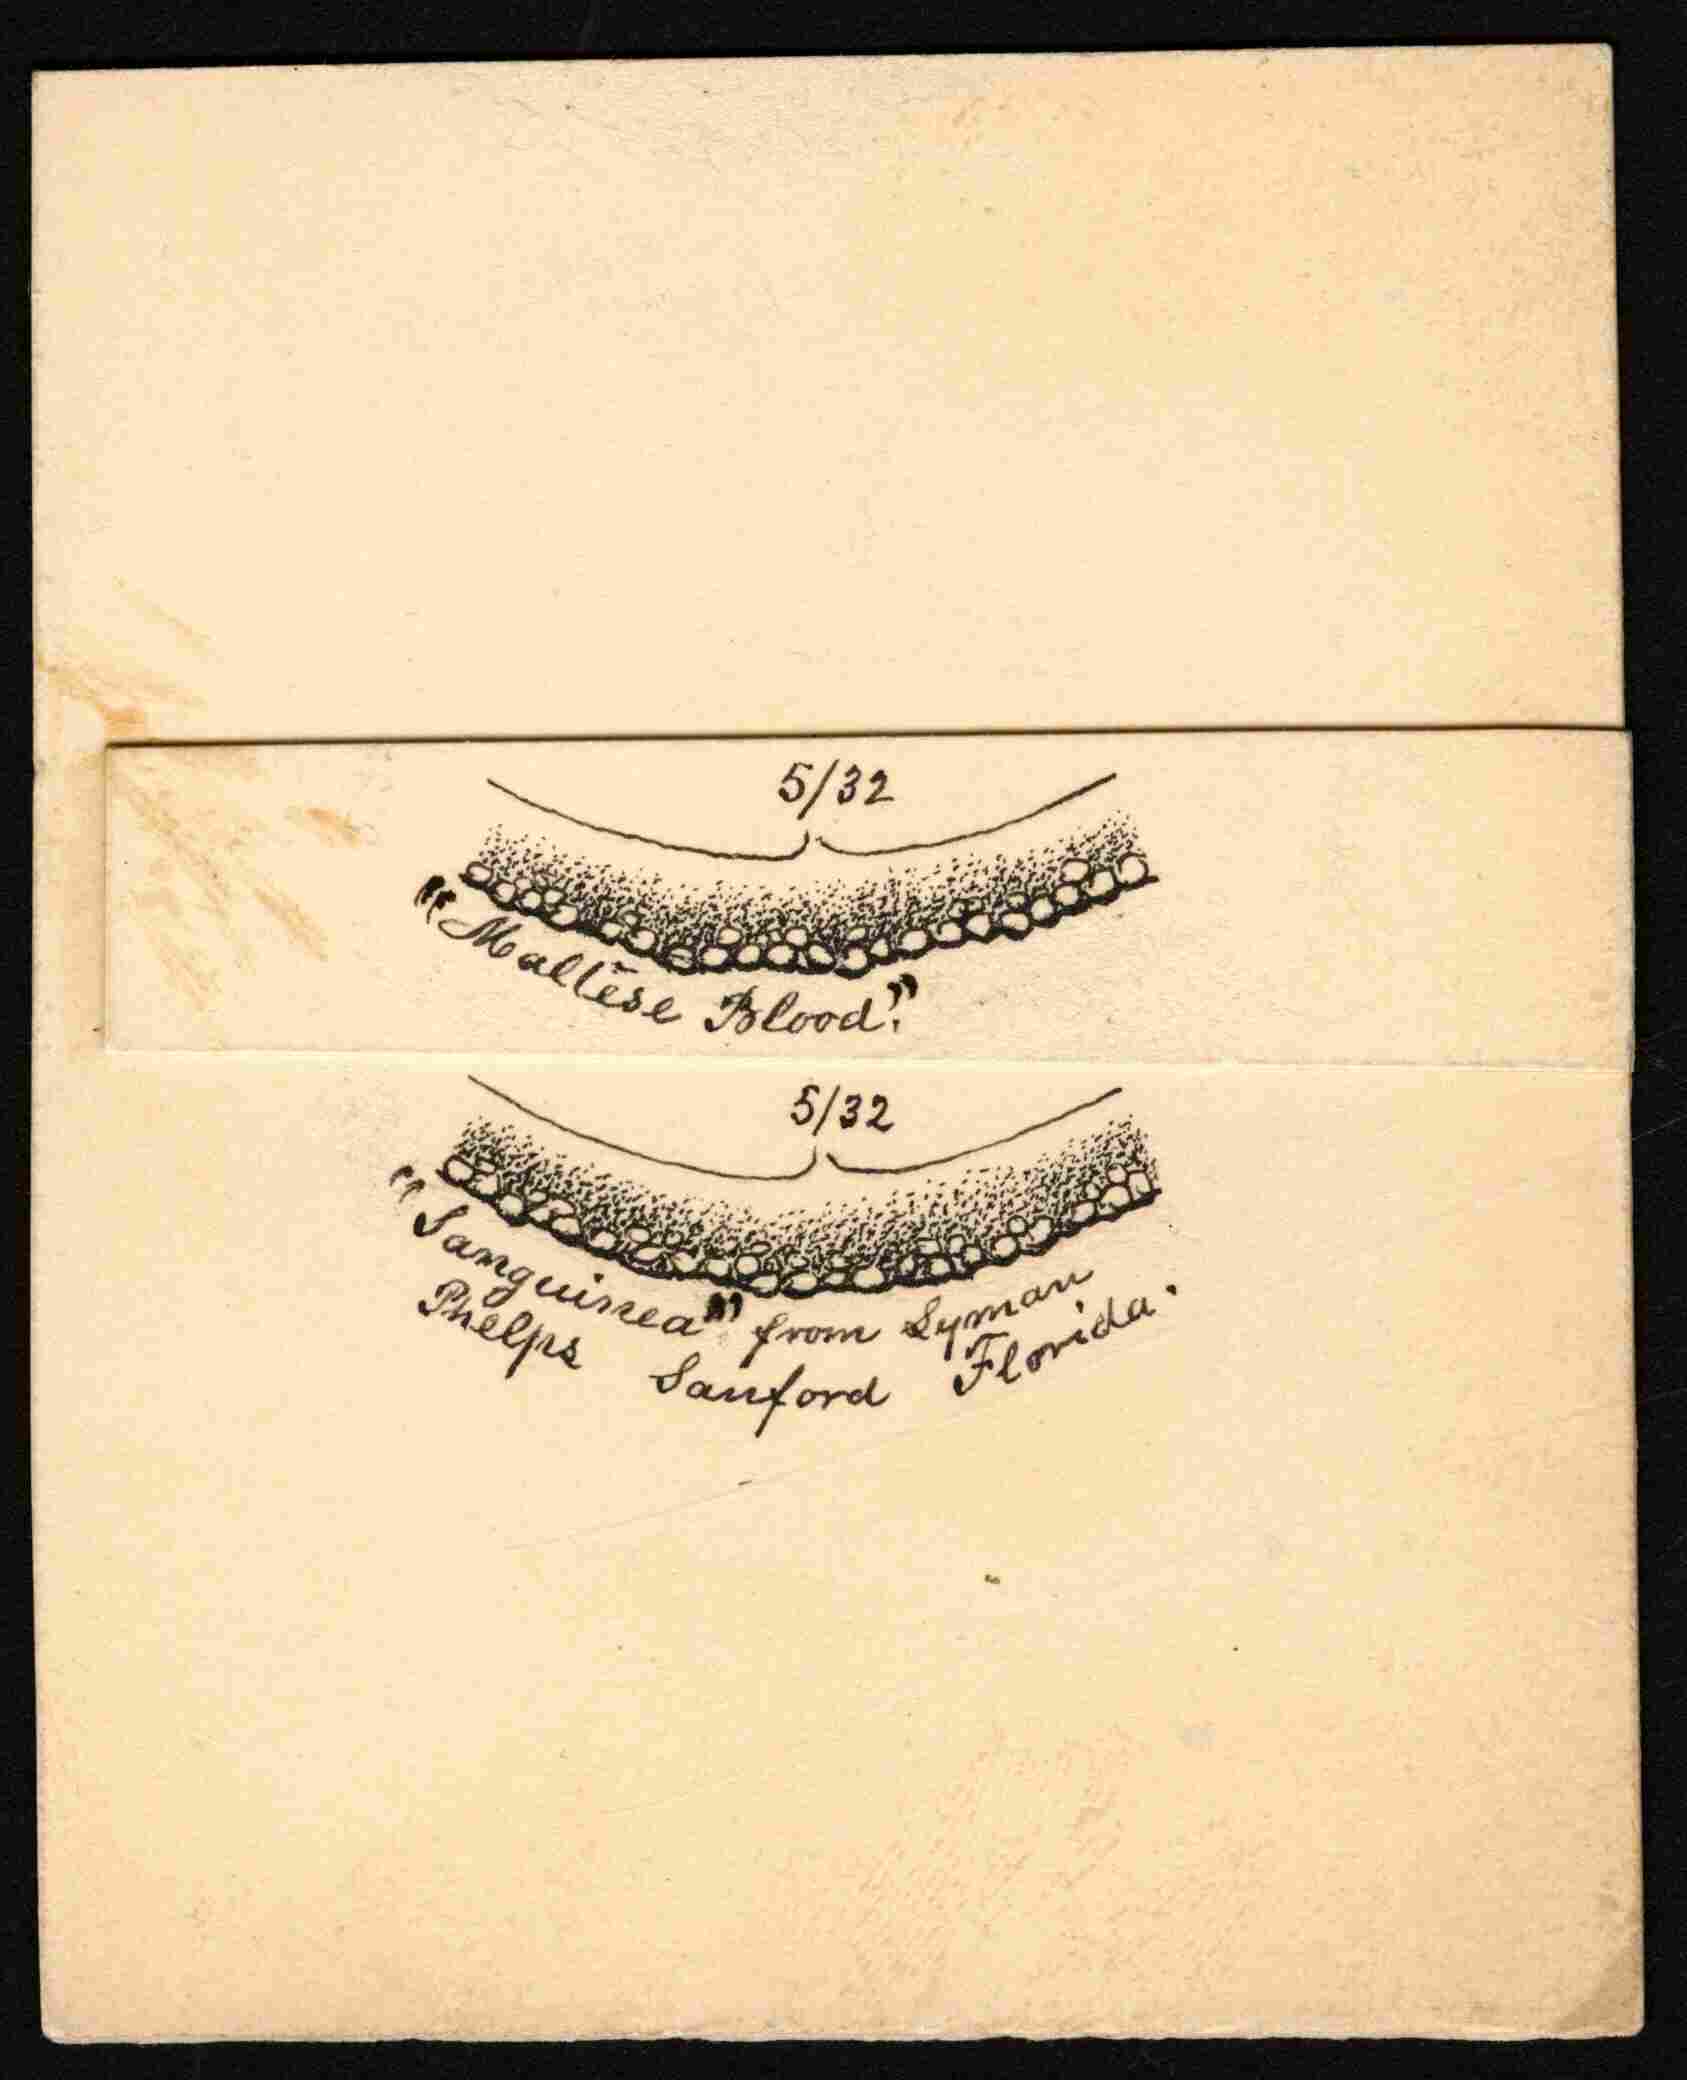 5/32
"Maltese Blood".
5/32
"Sanguinea" from Lyman
Phelps Sanford Florida.